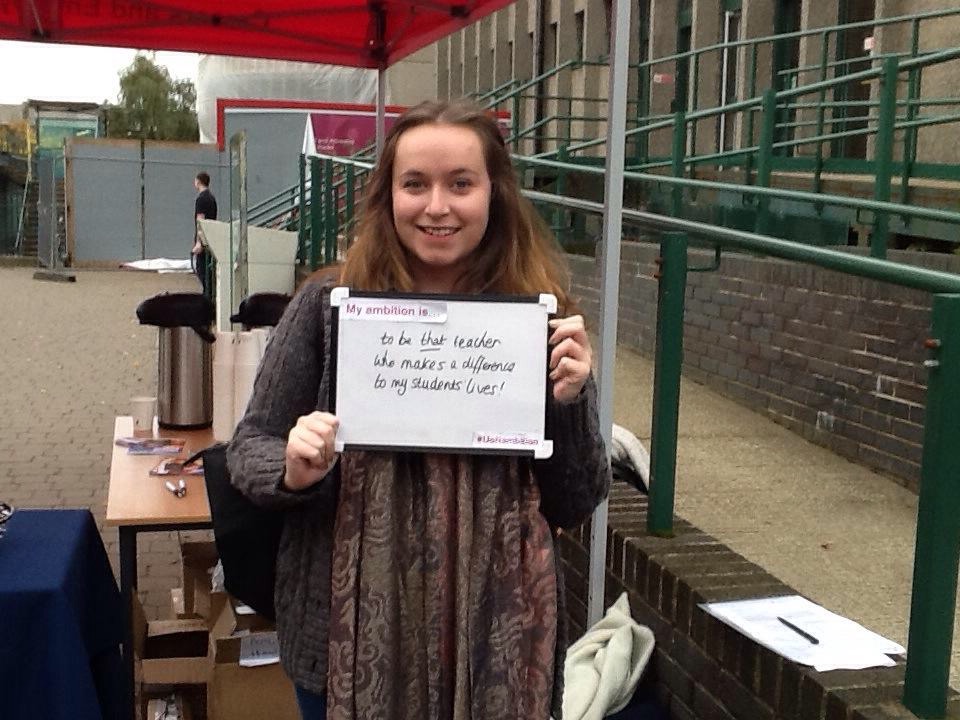 My ambition is...
to be that teacher
who makes a difference
to my students' lives!